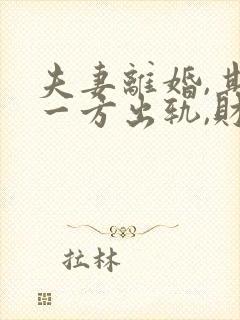 夫妻離婚,其
一方出軌,財
拉林